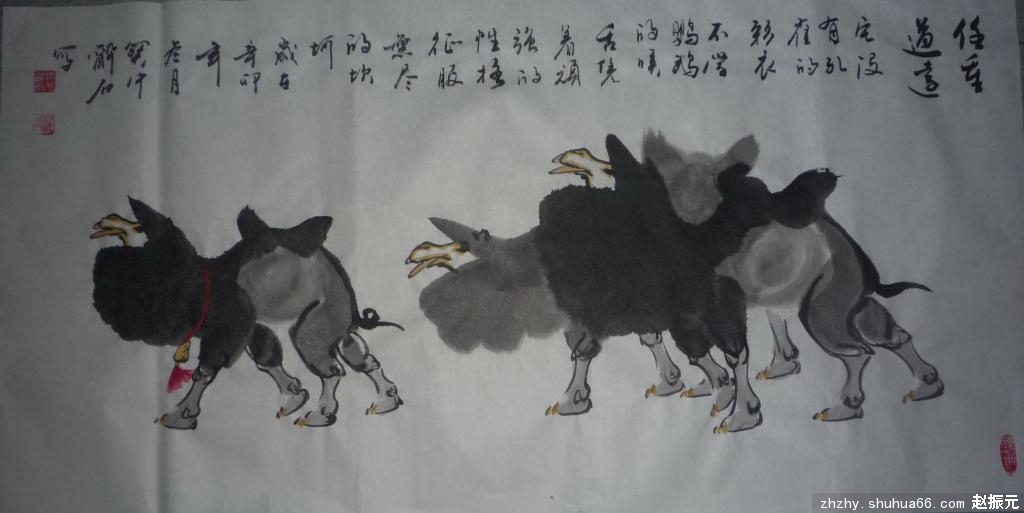 任重
道远
它没
有孔
雀的
彩衣
不谙
鹦鹉
的嗓
舌凭
着顽
强的
性格
征服
无尽
的坎
坷
岁在
辛卯
年
叁月
写
zhzhy.shuhua66.com 赵振元